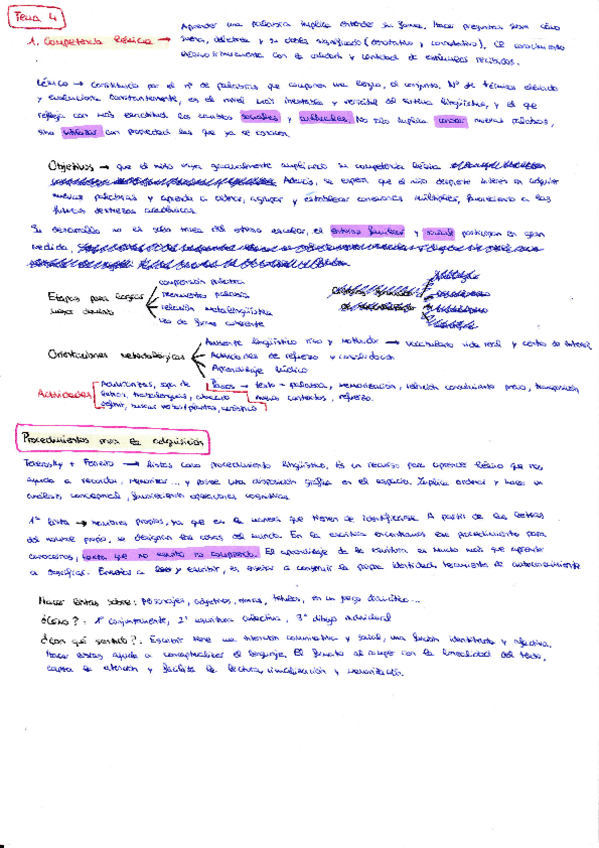 Tema 4
1. Competencia léxica → Aprender una palabra implica entender su forma, hacer preguntas sobre cómo
suena, deletrea y su doble significado (denotativo y connotativo). El conocimiento
léxico incrementa con la calidad y cantidad de estímulos recibidos.
Léxico → Constituido por el nº de palabras que componen una lengua, el conjunto. Nº de términos elevado
y evoluciona constantemente, es el nivel más inestable y versátil del sistema lingüístico, y el que
refleja con más exactitud los cambios sociales y culturales. No sólo implica conocer nuevas palabras,
sino utilizar con propiedad las que ya se conocen.
Objetivos → que el niño vaya gradualmente ampliando su competencia léxica
Además, se espera que el niño despierte interés en adquirir
nuevas palabras y aprenda a ordenar, agrupar y establecer conexiones múltiples, favoreciendo a las
futuras destrezas académicas.
Su desarrollo no es sólo tarea del entorno escolar, el entorno familiar y social participan en gran
medida.
Etapas para lograr
mayor dominio
comprensión palabra
relación metalingüística
uso de forma coherente
Orientaciones metodológicas
Ambiente lingüístico rico y motivador → vocabulario vida real y centro de interés
Actividades de refuerzo y consolidación
Aprendizaje lúdico
Actividades
Adivinanzas, sopa de
letras, trabalenguas,
definir, buscar
Pasos → texto - palabra, memorización, relación conocimiento previo, transposición
nuevos contextos, refuerzo.
Procedimientos para la adquisición
Teberosky y Ferreiro → listas como procedimiento lingüístico. Es un recurso para aprender léxico que nos
ayuda a recordar, memorizar... y posee una disposición gráfica en el espacio. Implica ordenar y hacer un
análisis conceptual, favoreciendo operaciones cognitivas.
1ª lista → nombres propios, ya que es la manera que tienen de identificarse. A partir de las letras
del nombre propio, se designan las cosas del mundo. En la escritura encontramos ese procedimiento para
conocernos, El aprendizaje de la escritura es mucho más que aprender
a decodificar. Enseñar a leer y escribir, es enseñar a construir la propia identidad, herramienta de autoconocimiento
Hacer listas sobre: personajes, objetivos, títulos, en un juego dramático...
¿Cómo?: 1º conjuntamente, 2º escritura colectiva, 3º dibujo individual
¿Con qué sentido?: Escribir tiene una intención comunicativa y social, una función identitaria y afectiva.
Hacer listas ayuda a conceptualizar el lenguaje. El formato al romper con la linealidad del texto,
capta la atención y facilita la lectura, visualización y memorización.